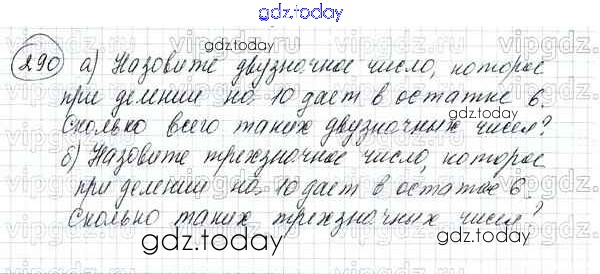 gdz.today
290 а) Назовите двузначное число, которое
gdz.today
при делении на 10 дает в остатке 6.
Сколько всего таких двузначных чисел?
б) Назовите трехзначное число, которое
при делении на 10 дает в остатке 6.
Сколько таких трехзначных чисел?
gdz.today
gdz.today